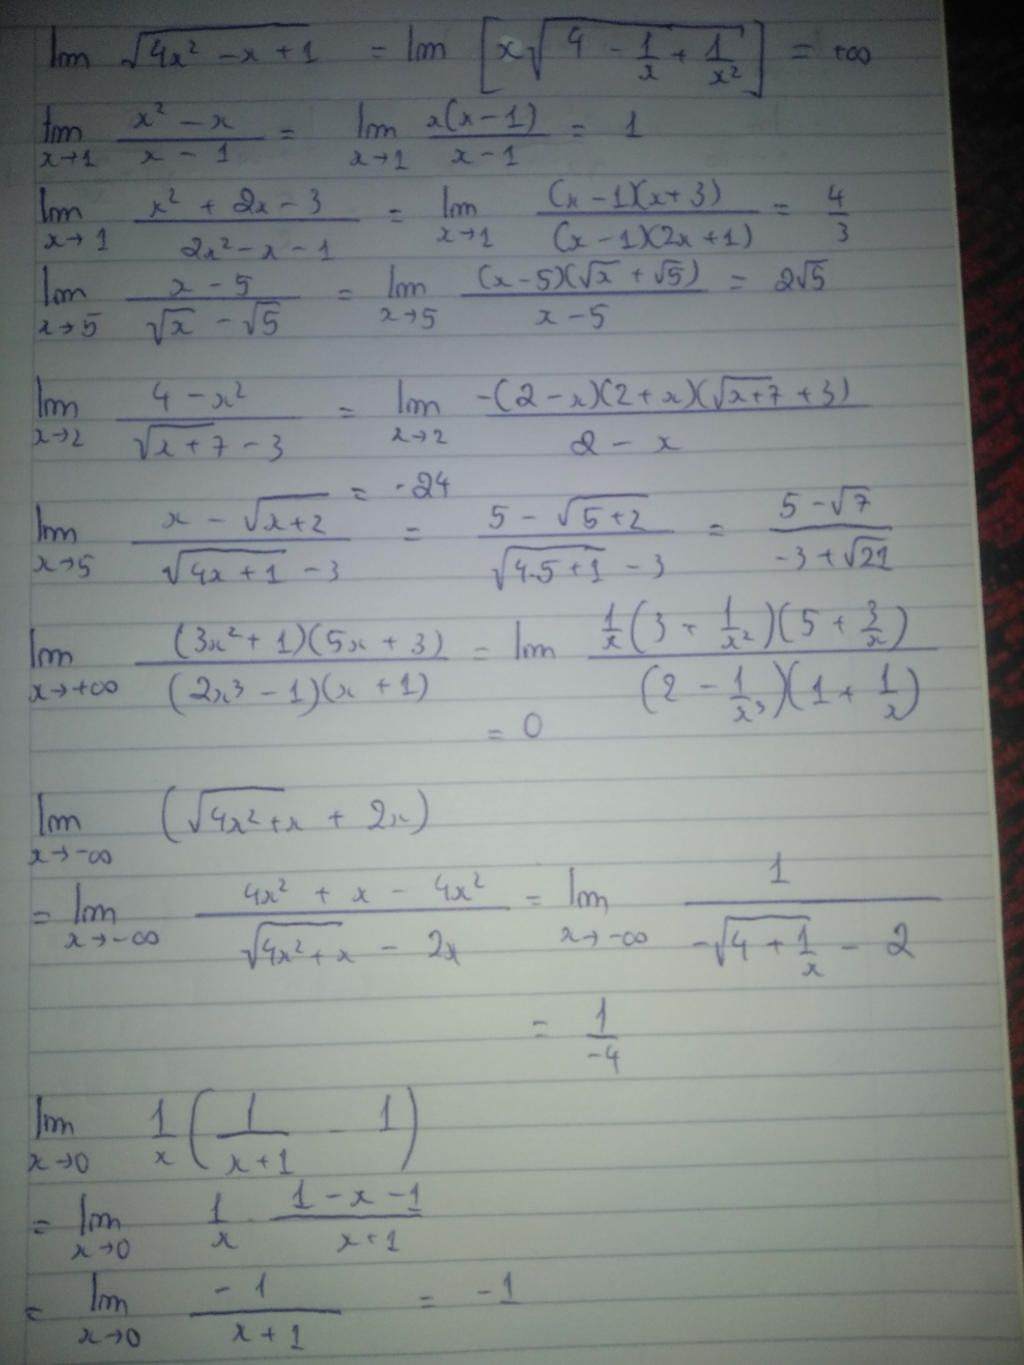 lim √(4x² - x + 1) = lim [x√(4 - 1/x + 1/x²)] = +∞
lim x→1 (x² - x)/(x - 1) = lim x→1 x(x-1)/(x-1) = 1
lim x→1 (x² + 2x - 3)/(2x² - x - 1) = lim x→1 (x-1)(x+3)/((x-1)(2x+1)) = 4/3
lim x→5 (x - 5)/(√x - √5) = lim x→5 (x-5)(√x + √5)/(x-5) = 2√5
lim x→2 (4 - x²)/(√(x+7) - 3) = lim x→2 -(2-x)(2+x)(√(x+7) + 3)/(2 - x)
= -24
lim x→5 (x - √(x+2))/(√(4x+1) - 3) = (5 - √(5+2))/(√(4.5+1) - 3) = (5 - √7)/(-3 + √21)
lim x→+∞ (3x² + 1)(5x + 3)/((2x³ - 1)(x + 1)) = lim 1/x (3 + 1/x²)(5 + 3/x)/((2 - 1/x³)(1 + 1/x))
= 0
lim x→-∞ (√(4x²+x) + 2x)
= lim x→-∞ (4x² + x - 4x²)/(√(4x²+x) - 2x) = lim x→-∞ 1/(-√(4 + 1/x) - 2)
= 1/-4
lim x→0 1/x (1/(x+1) - 1)
= lim x→0 1/x . (1 - x - 1)/(x+1)
= lim x→0 -1/(x+1) = -1